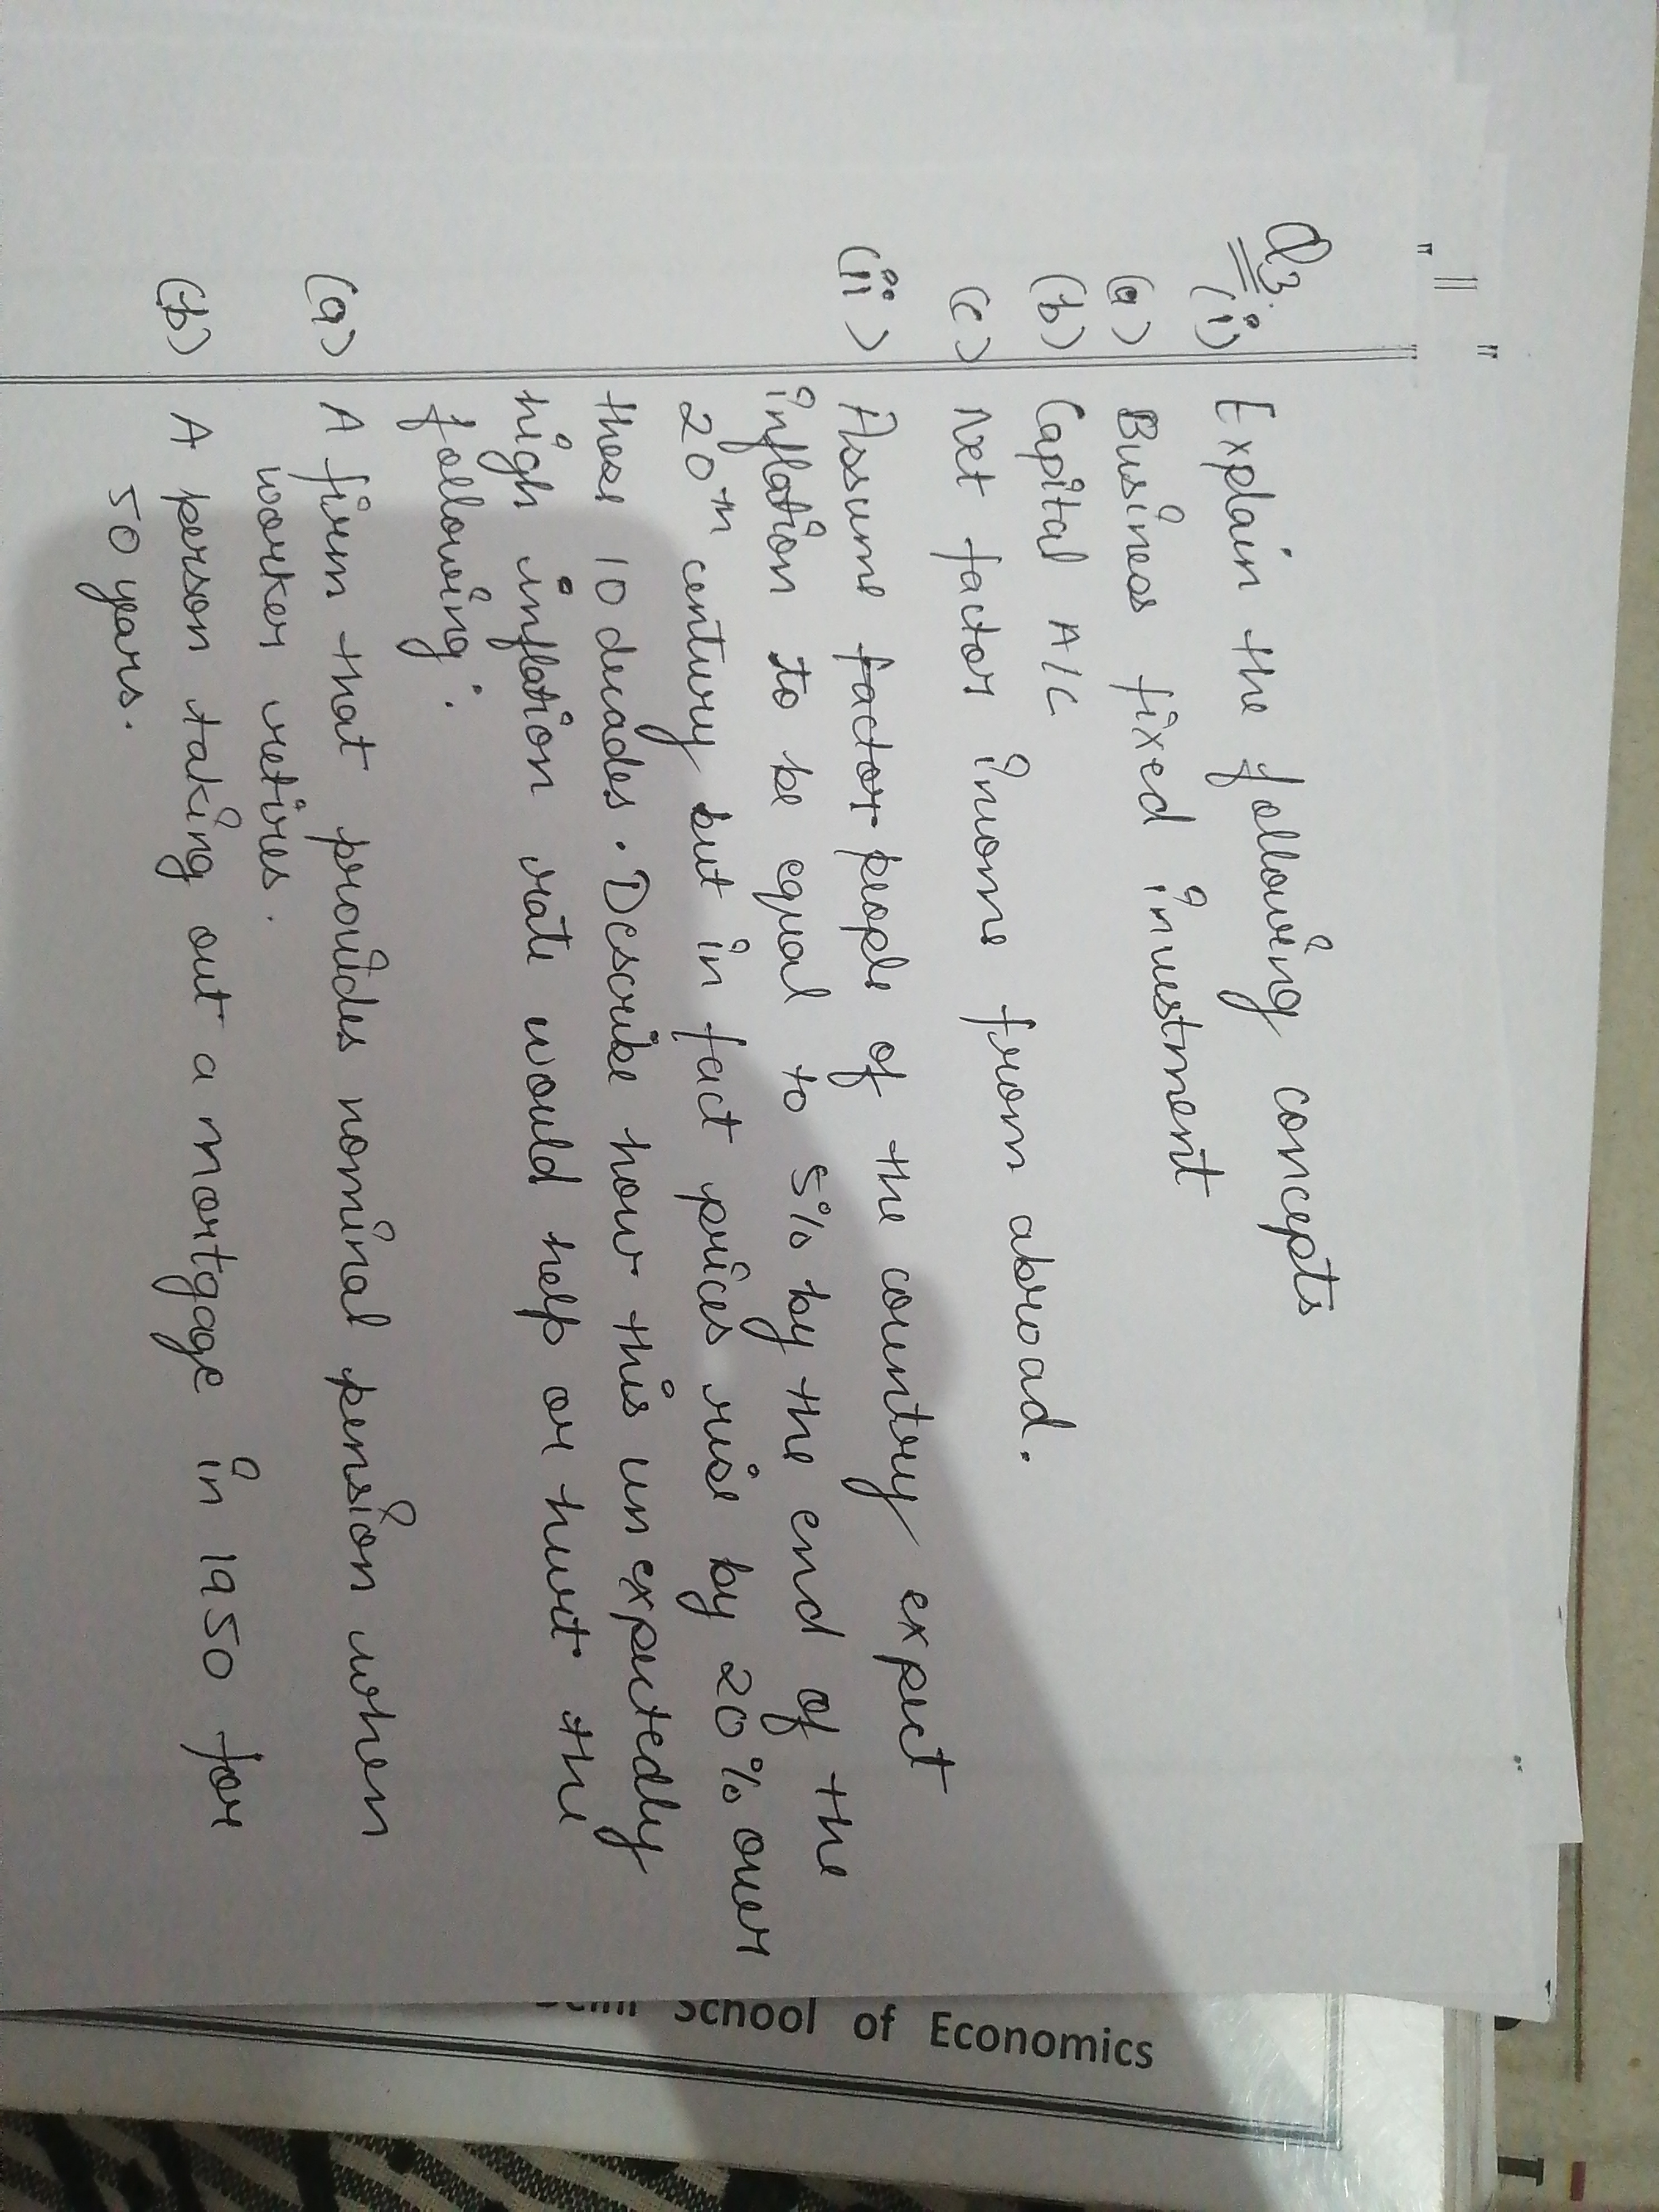 Q3. (i) Explain the following concepts
(a) Business fixed investment
(b) Capital A/C
(c) Net factor income from abroad.
(ii) Assume factor people of the country expect
inflation to be equal to 5% by the end of the
20th century but in fact prices rise by 20% over
these 10 decades. Describe how this unexpectedly
high inflation rate would help or hurt the
following:
(a) A firm that provides nominal pension when
worker retires.
(b) A person taking out a mortgage in 1950 for
50 years.
School of Economics